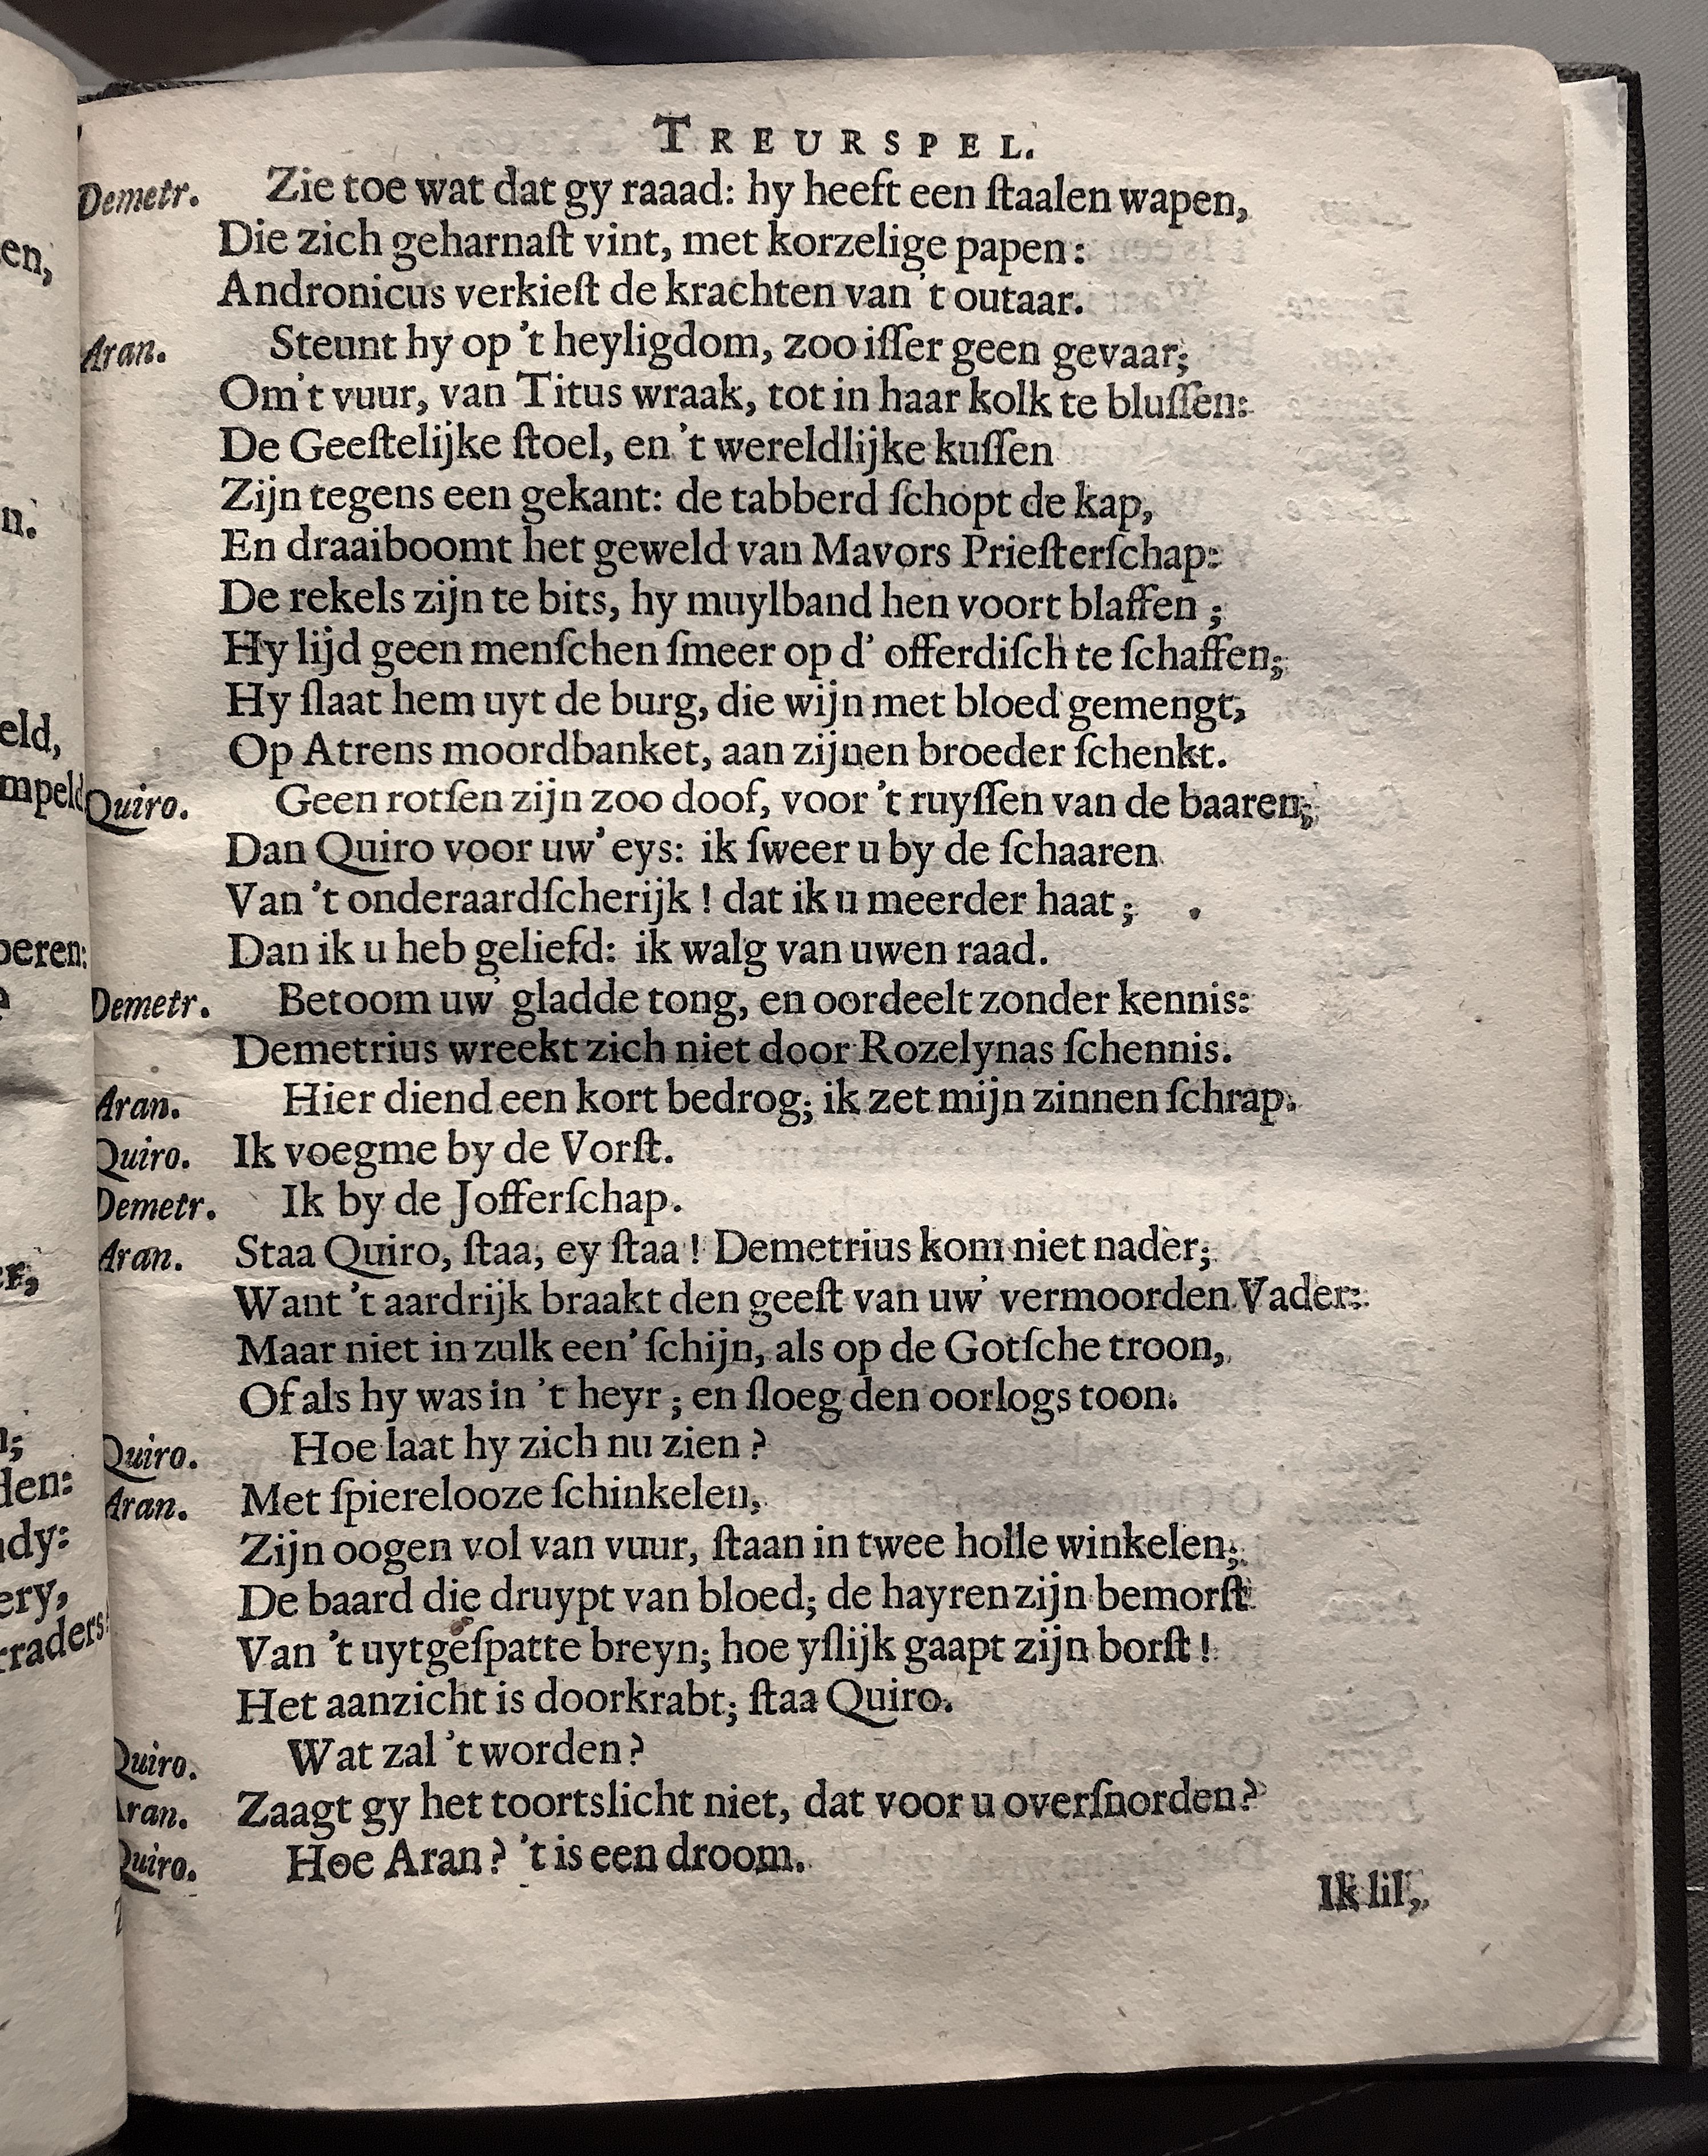 en,
n.
eld,
mpeld
beren:
e
er,
den:
ndy:
ery,
rraders
TREURSPEL.
Demetr. Zie toe wat dat gy raaad: hy heeft een ſtaalen wapen,
Die zich geharnaſt vint, met korzelige papen:
Andronicus verkieſt de krachten van 't outaar.
Aran. Steunt hy op 't heyligdom, zoo iſſer geen gevaar;
Om 't vuur, van Titus wraak, tot in haar kolk te bluſſen:
De Geeſtelijke ſtoel, en 't wereldlijke kuſſen
Zijn tegens een gekant: de tabberd ſchopt de kap,
En draaiboomt het geweld van Mavors Prieſterſchap:
De rekels zijn te bits, hy muylband hen voort blaffen;
Hy lijd geen menſchen ſmeer op d' offerdiſch te ſchaffen;
Hy ſlaat hem uyt de burg, die wijn met bloed gemengt,
Op Atrens moordbanket, aan zijnen broeder ſchenkt.
Quiro. Geen rotſen zijn zoo doof, voor 't ruyſſen van de baaren;
Dan Quiro voor uw' eys: ik ſweer u by de ſchaaren
Van 't onderaardſcherijk! dat ik u meerder haat;
Dan ik u heb geliefd: ik walg van uwen raad.
Demetr. Betoom uw' gladde tong, en oordeelt zonder kennis:
Demetrius wreekt zich niet door Rozelynas ſchennis.
Aran. Hier diend een kort bedrog; ik zet mijn zinnen ſchrap.
Quiro. Ik voegme by de Vorſt.
Demetr. Ik by de Jofferſchap.
Aran. Staa Quiro, ſtaa, ey ſtaa! Demetrius kom niet nader;
Want 't aardrijk braakt den geeſt van uw' vermoorden Vader:
Maar niet in zulk een' ſchijn, als op de Gotſche troon,
Of als hy was in 't heyr; en ſloeg den oorlogs toon.
Quiro. Hoe laat hy zich nu zien?
Aran. Met ſpierelooze ſchinkelen,
Zijn oogen vol van vuur, ſtaan in twee holle winkelen;
De baard die druypt van bloed; de hayren zijn bemorſt
Van 't uytgeſpatte breyn; hoe yſlijk gaapt zijn borſt!
Het aanzicht is doorkrabt; ſtaa Quiro.
Quiro. Wat zal 't worden?
Aran. Zaagt gy het toortslicht niet, dat voor u overſnorden?
Quiro. Hoe Aran? 't is een droom.
Ik lil,